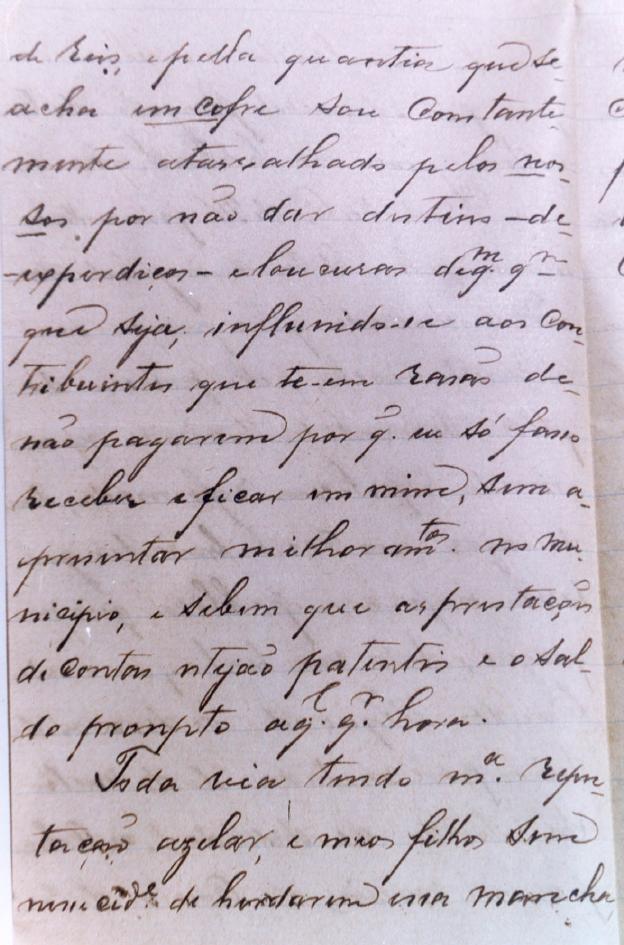 de Reis, e pella quantia que se
acha em cofre sou constante
mente atassalhado pelos nos-
sos por não dar destino -de-
-experdicos- e loucuras de q.m q.r
que seja, influindo-se aos con-
tribuintes que te-em rasão de-
não pagarem por q̃. eu só fasso
receber e ficar em mim, sem a-
presentar milhoram.tos no mu-
nicipio, e sebem que as prestações
de contas estejão patentes e o sal-
do prompto a q.l q.r hora.
Toda via tendo m.a repu-
tação azelar, e meos filhos sem
nesecid.de de herdarem essa mancha